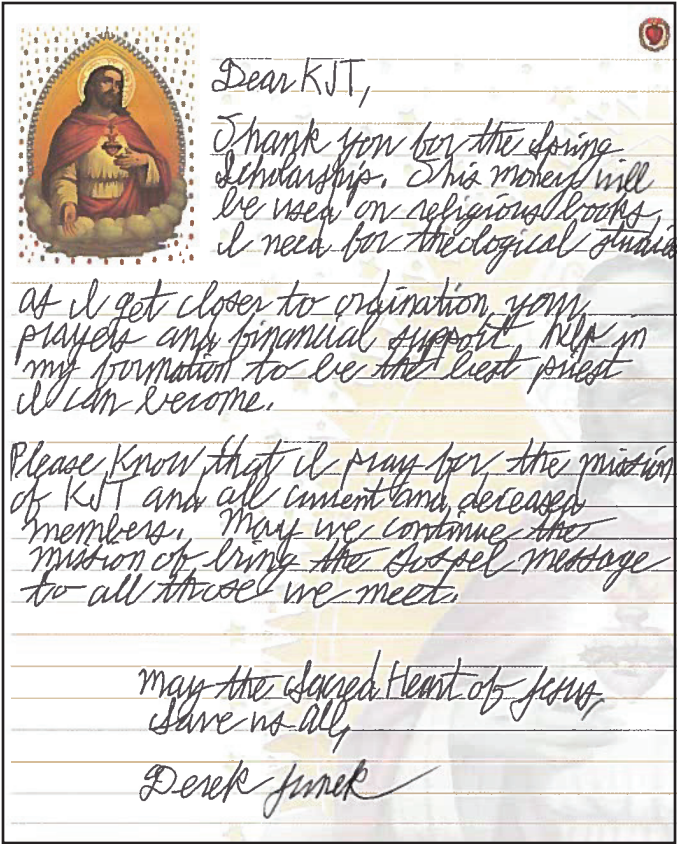 Dear KJT,
Thank you for the Spring
Scholarship. This money will
be used on religious books,
I need for theological studies
as I get closer to ordination, your
prayers and financial support help in
my formation to be the best priest
I can become.
Please know that I pray for the mission
of KJT and all current and deceased
members. May we continue the
mission of bring the Gospel message
to all those we meet.
May the Sacred Heart of Jesus,
Save us all,
Derek Junek